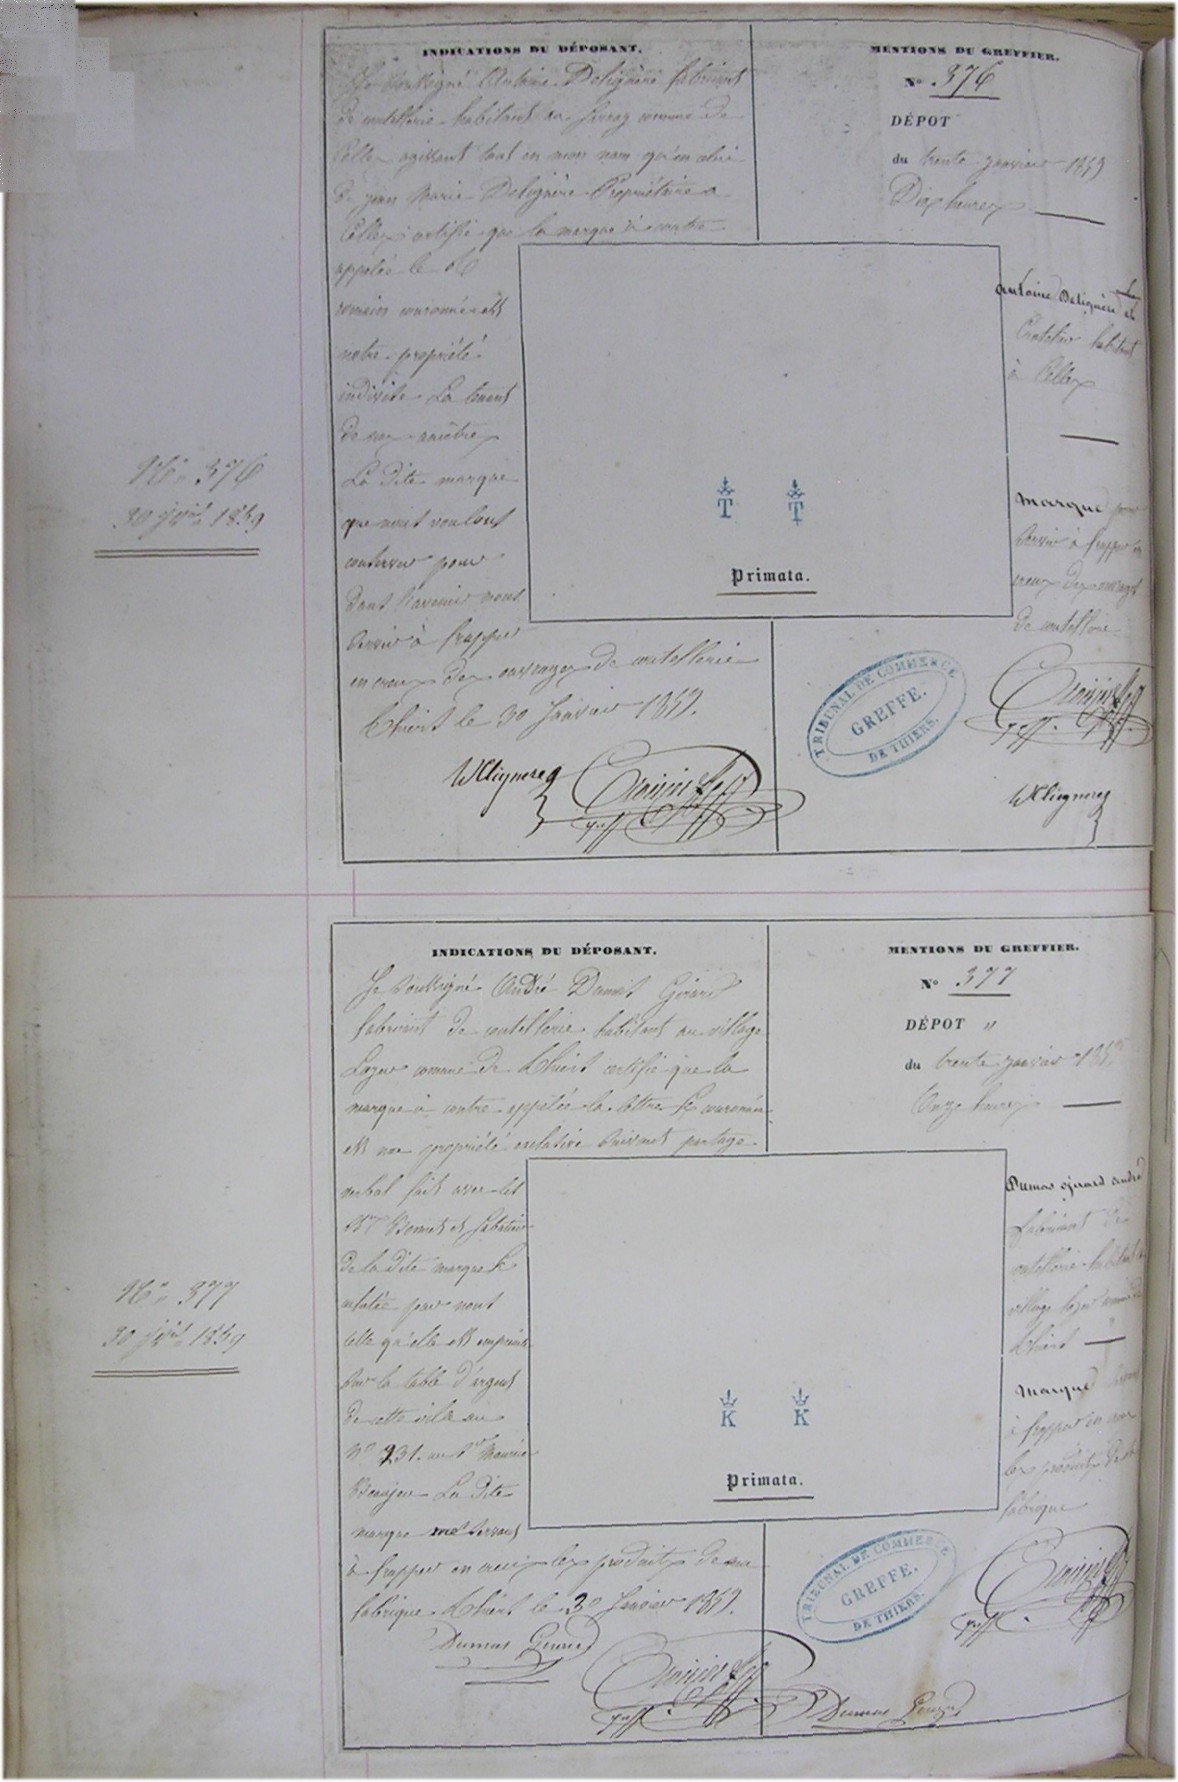 INDICATIONS DU DÉPOSANT.
Je soussigné Antoine Delignère fabricant
de coutellerie habitant au commune de
Celles agissant tant en mon nom qu'en celui
de jean Marie Delignère Propriétaire a
Celles certifie que la marque ci contre
appelée le
romain couronnée est
notre propriété
indivise La tenant
de nos ancêtres
La dite marque
que nous voulons
conserver pour
dans l'avenir nous
servir à frapper
en creux des ouvrages de coutellerie
Thiers le 30 Janvier 1859.
MENTIONS DU GREFFIER.
N° 376
DÉPOT
du trente janvier 1859
Dix heures
Antoine Delignère
Coutelier habitant
à Celles
Marque pour
servir à frapper en
creux des ouvrages
de coutellerie
N° 376
30 jvier 1859
T T
Primata.
TRIBUNAL DE COMMERCE
GREFFE.
DE THIERS.
INDICATIONS DU DÉPOSANT.
Je soussigné André Dumas Girard
fabricant de coutellerie habitant au village
Lagur commune de Thiers certifie que la
marque ci contre appelée la lettre K couronnée
est ma propriété exclusive suivant partage
verbal fait avec les
Srs Bonnet et Sabatier
de la dite marque K
telle qu'elle est empreinte
sur la table d'argent
de cette ville au
N° 231. au
La dite
marque me servant
à frapper en creux les produits de ma
fabrique Thiers le 30 Janvier 1859.
Dumas Girard
MENTIONS DU GREFFIER.
N° 377
DÉPOT "
du trente janvier 1859
Onze heures
Dumas Girard André
fabricant de
coutellerie habitant
village Lagur commune de
Thiers
Marque servant
à frapper en creux
les produits de sa
fabrique
N° 377
30 jvier 1859
K K
Primata.
TRIBUNAL DE COMMERCE
GREFFE.
DE THIERS.
Dumas Girard